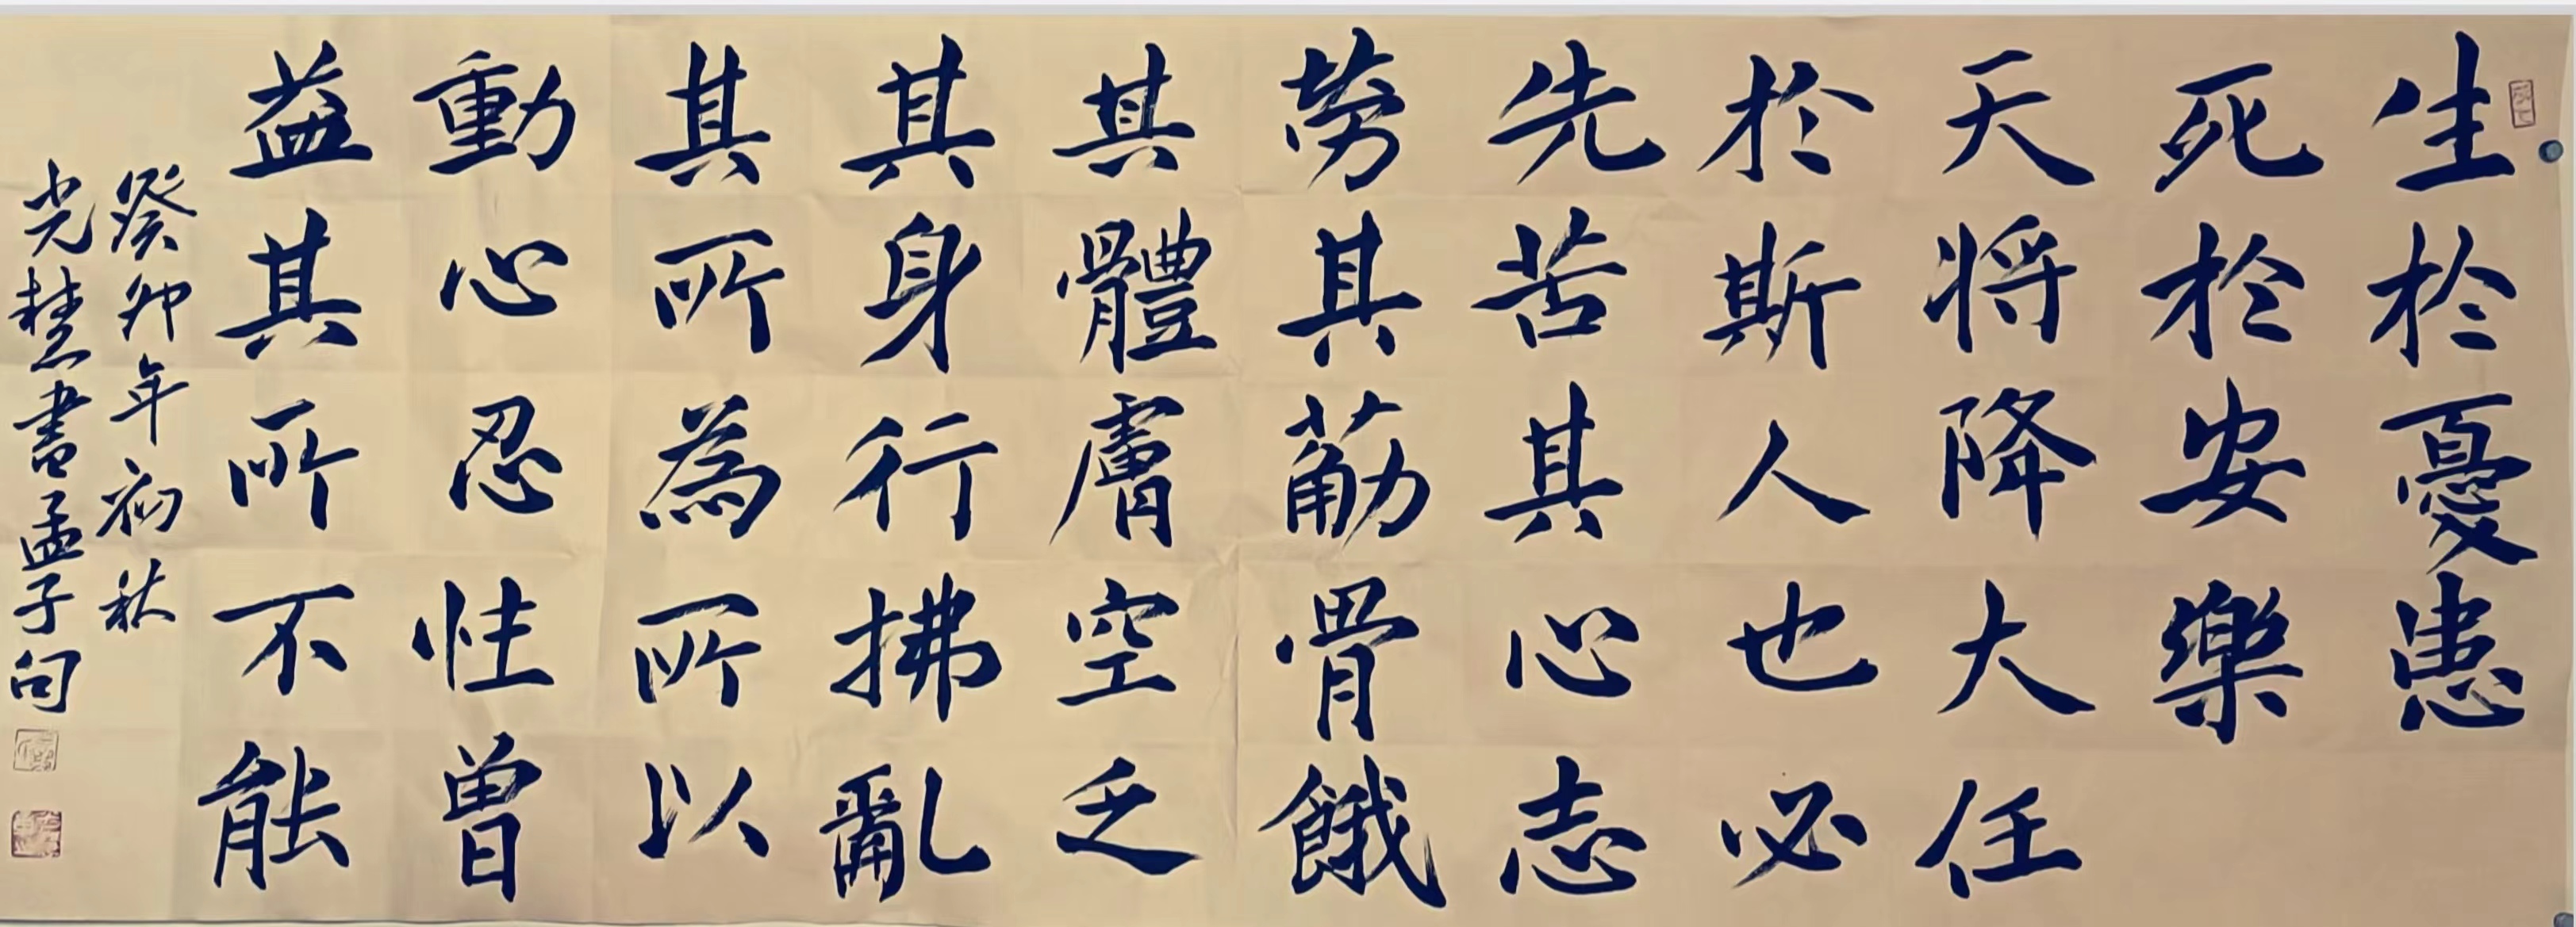 生於憂患
死於安樂
天将降大任
於斯人也必
先苦其心志
勞其筋骨餓
其體膚空乏
其身行拂亂
其所為所以
動心忍性曾
益其所不能
癸卯年初秋
光楚書孟子句